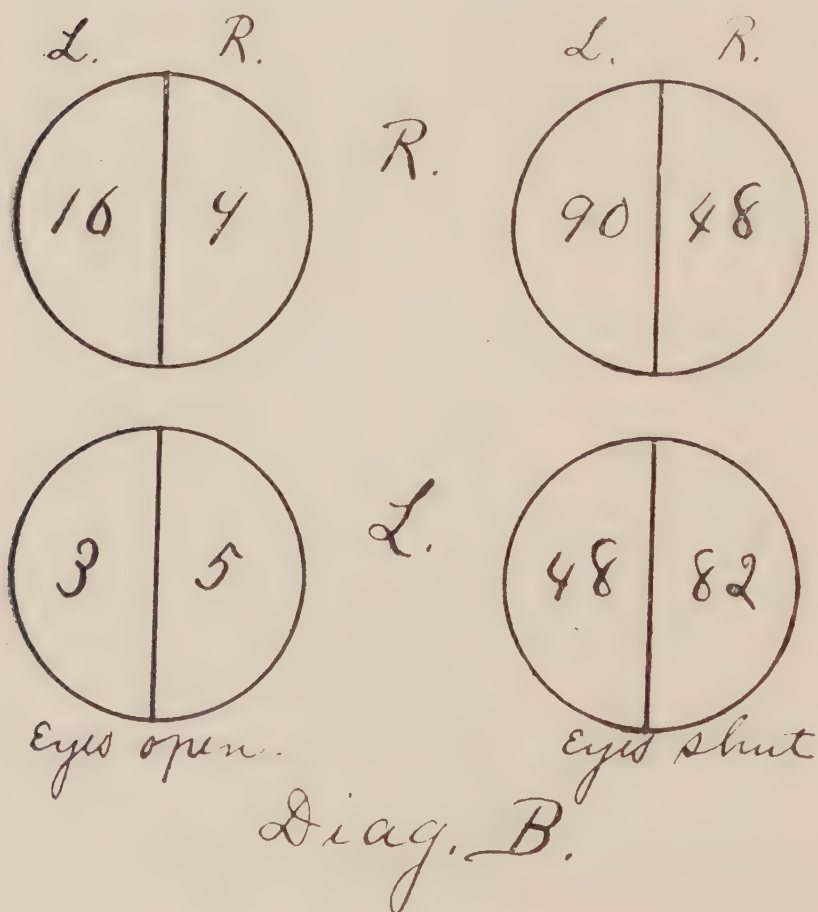 L. R. L. R.
R.
16 4 90 48
L.
3 5 48 82
Eyes open. Eyes shut
Diag. B.